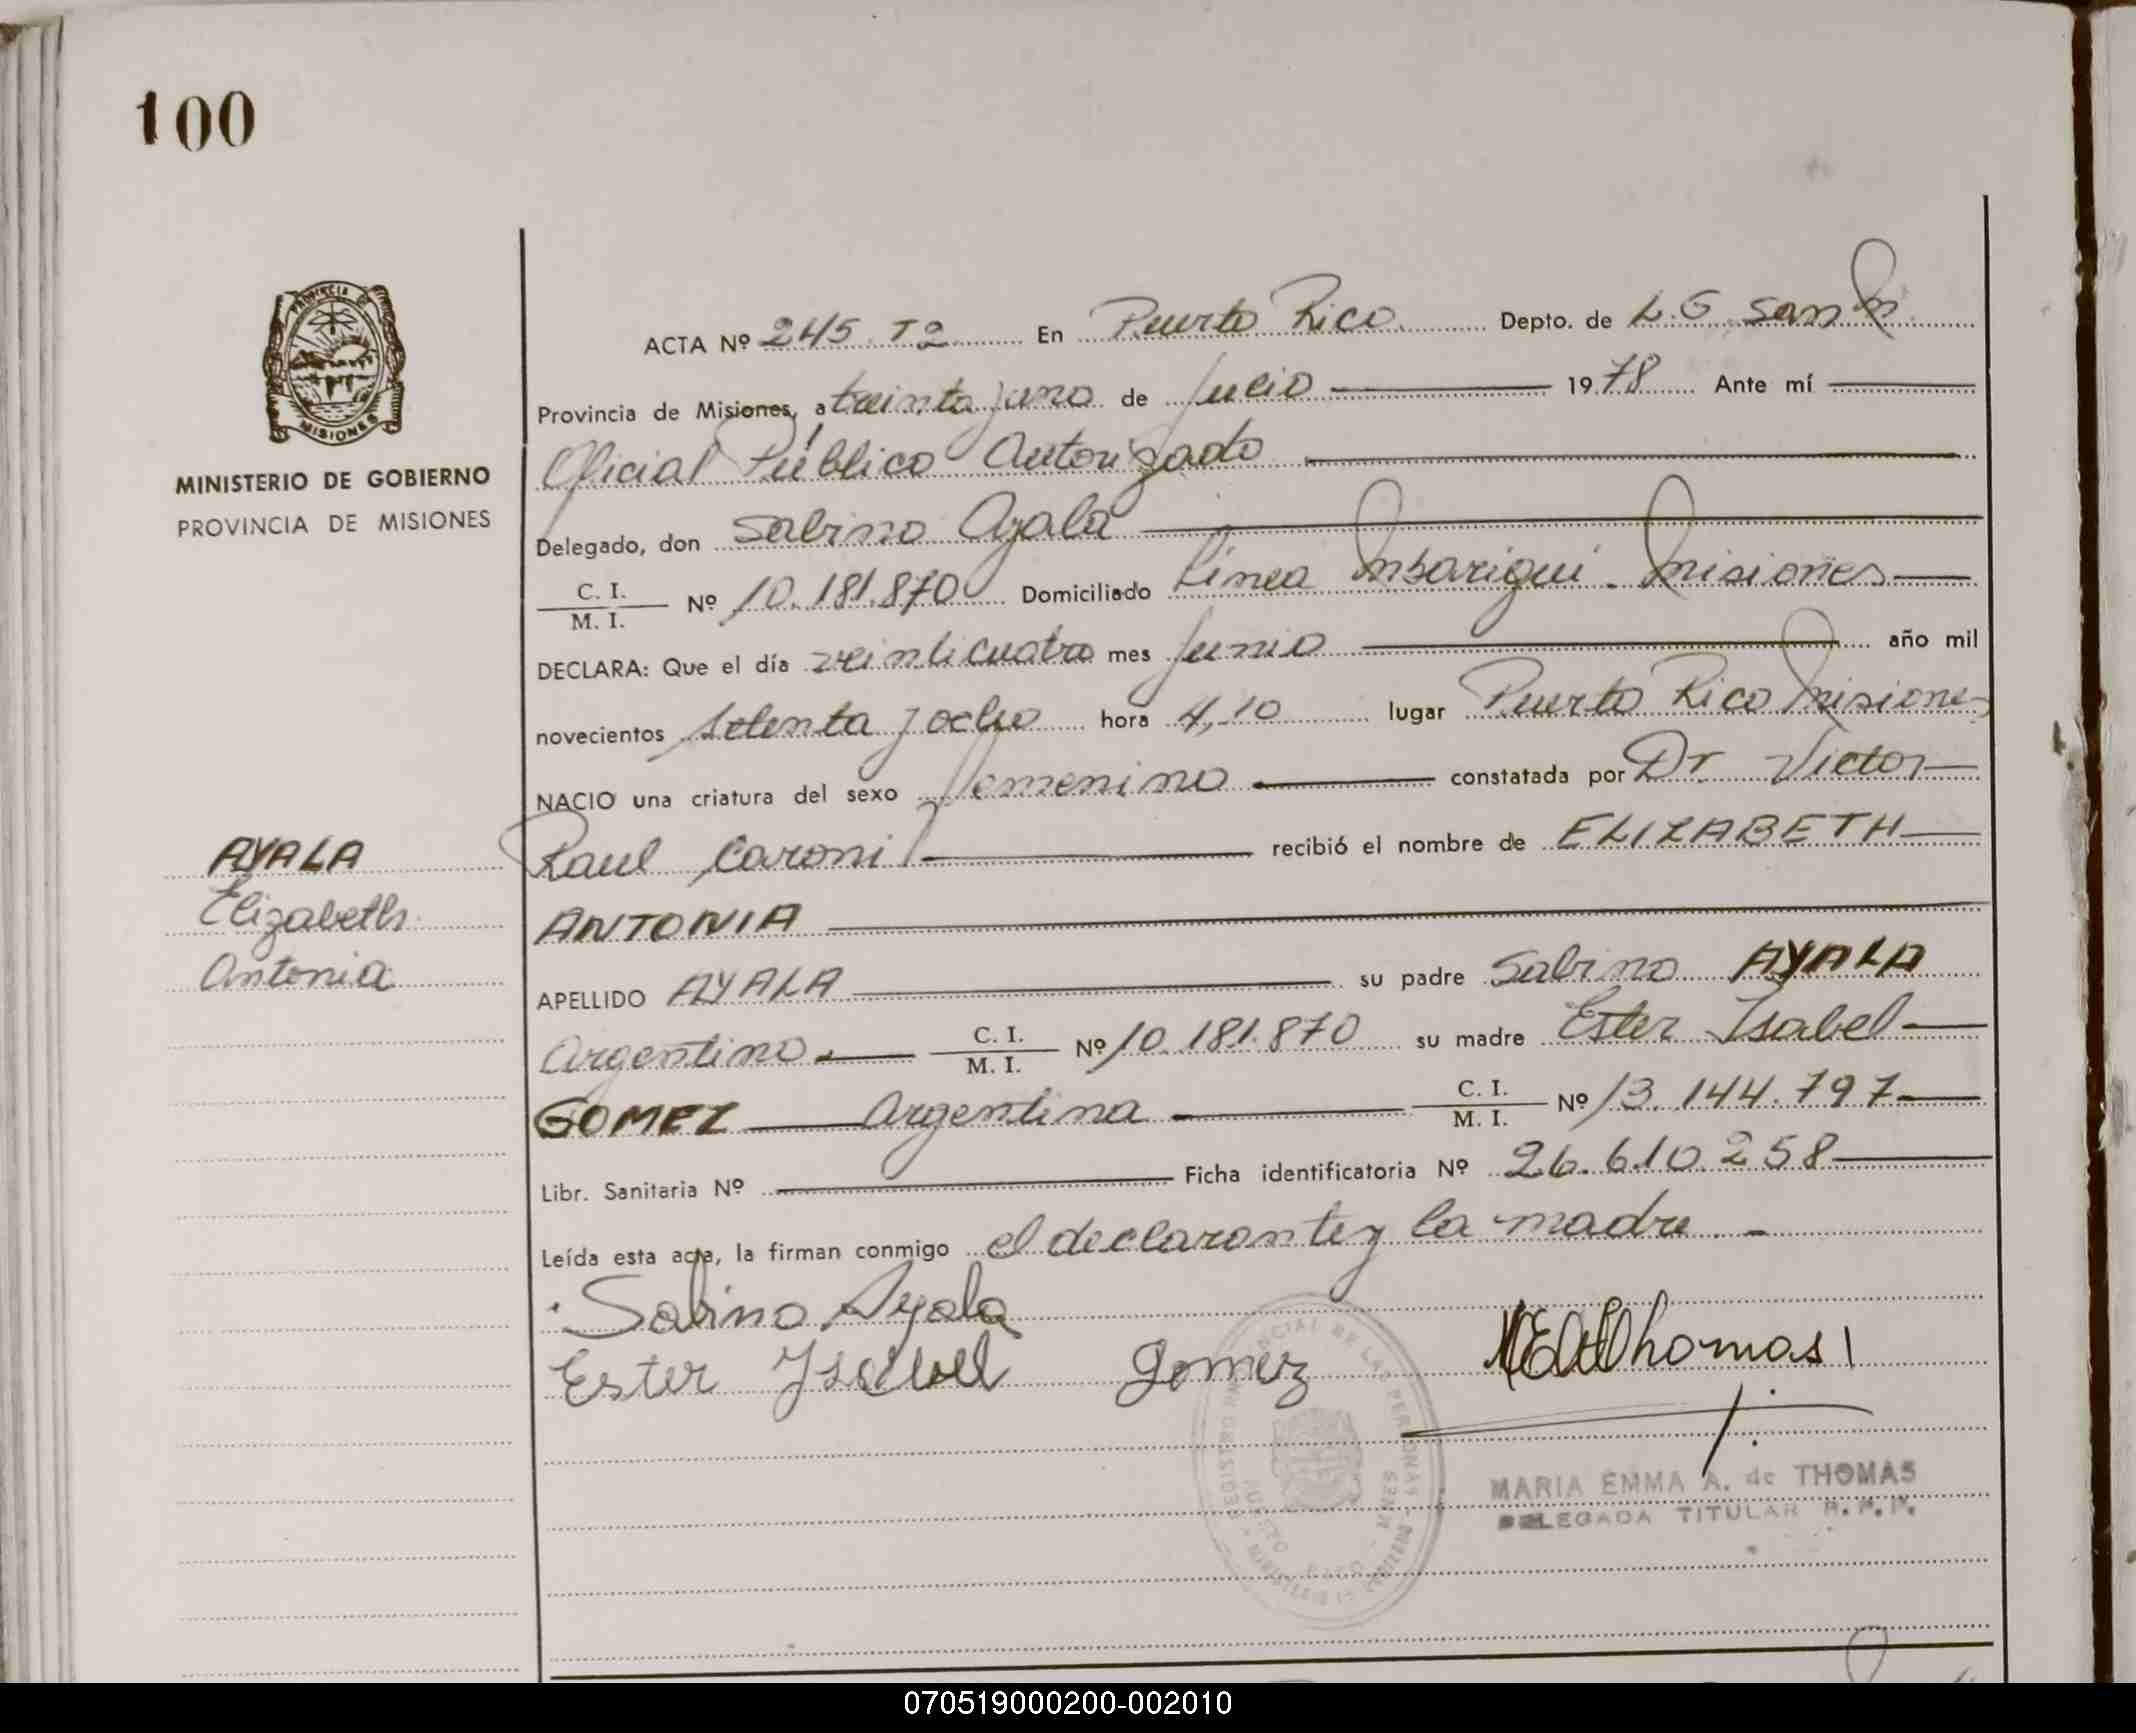 100
PROVINCIA DE
MISIONES
MINISTERIO DE GOBIERNO
PROVINCIA DE MISIONES
ACTA Nº 245 T2 En Puerto Rico Depto. de L. G. San M
Provincia de Misiones, a treinta y uno de Julio 1978 Ante mí
Oficial Público Autorizado
Delegado, don Sabino Ayala
C. I.
M. I. Nº 10.181.870 Domiciliado Línea Mbarigui. Misiones
DECLARA: Que el día veinticuatro mes Junio año mil
novecientos setenta y ocho hora 4,10 lugar Puerto Rico Misiones
NACIO una criatura del sexo femenino constatada por Dr. Victor
Raul Caroni recibió el nombre de ELIZABETH
ANTONIA
APELLIDO AYALA su padre Sabino AYALA
Argentino C. I. M. I. Nº 10.181.870 su madre Ester Isabel
GOMEZ Argentina C. I. M. I. Nº 13.144.797
Libr. Sanitaria Nº Ficha identificatoria Nº 26.610.258
Leída esta acta, la firman conmigo el declarante y la madre. -
Sabino Ayala
Ester Isabel Gomez
Thomas
MARIA EMMA A. de THOMAS
DELEGADA TITULAR R. P. P.
AYALA
Elizabeth
Antonia
070519000200-002010